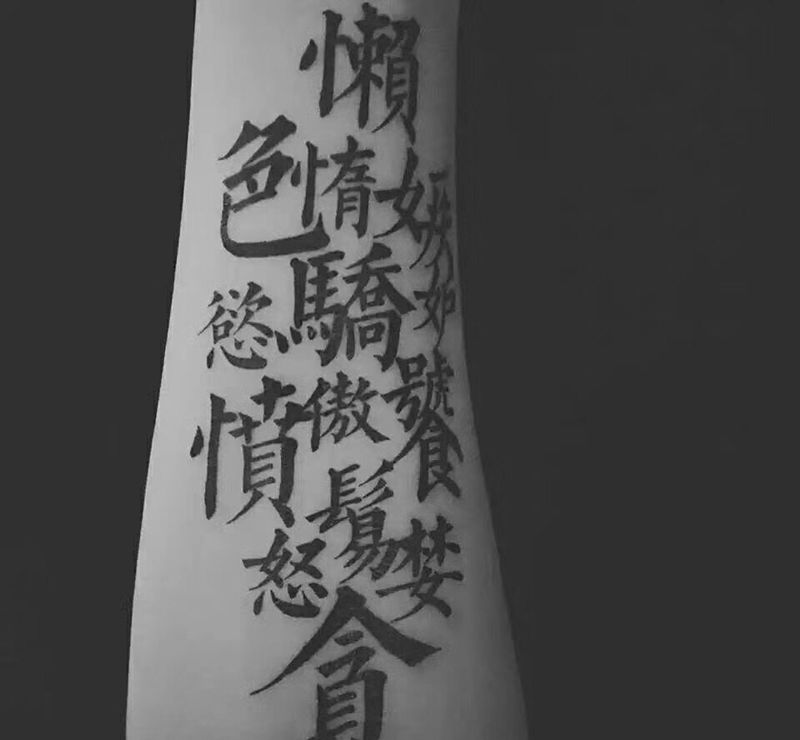 懶惰
嫉妒
色慾
驕傲
饕鬄
憤怒
貪婪